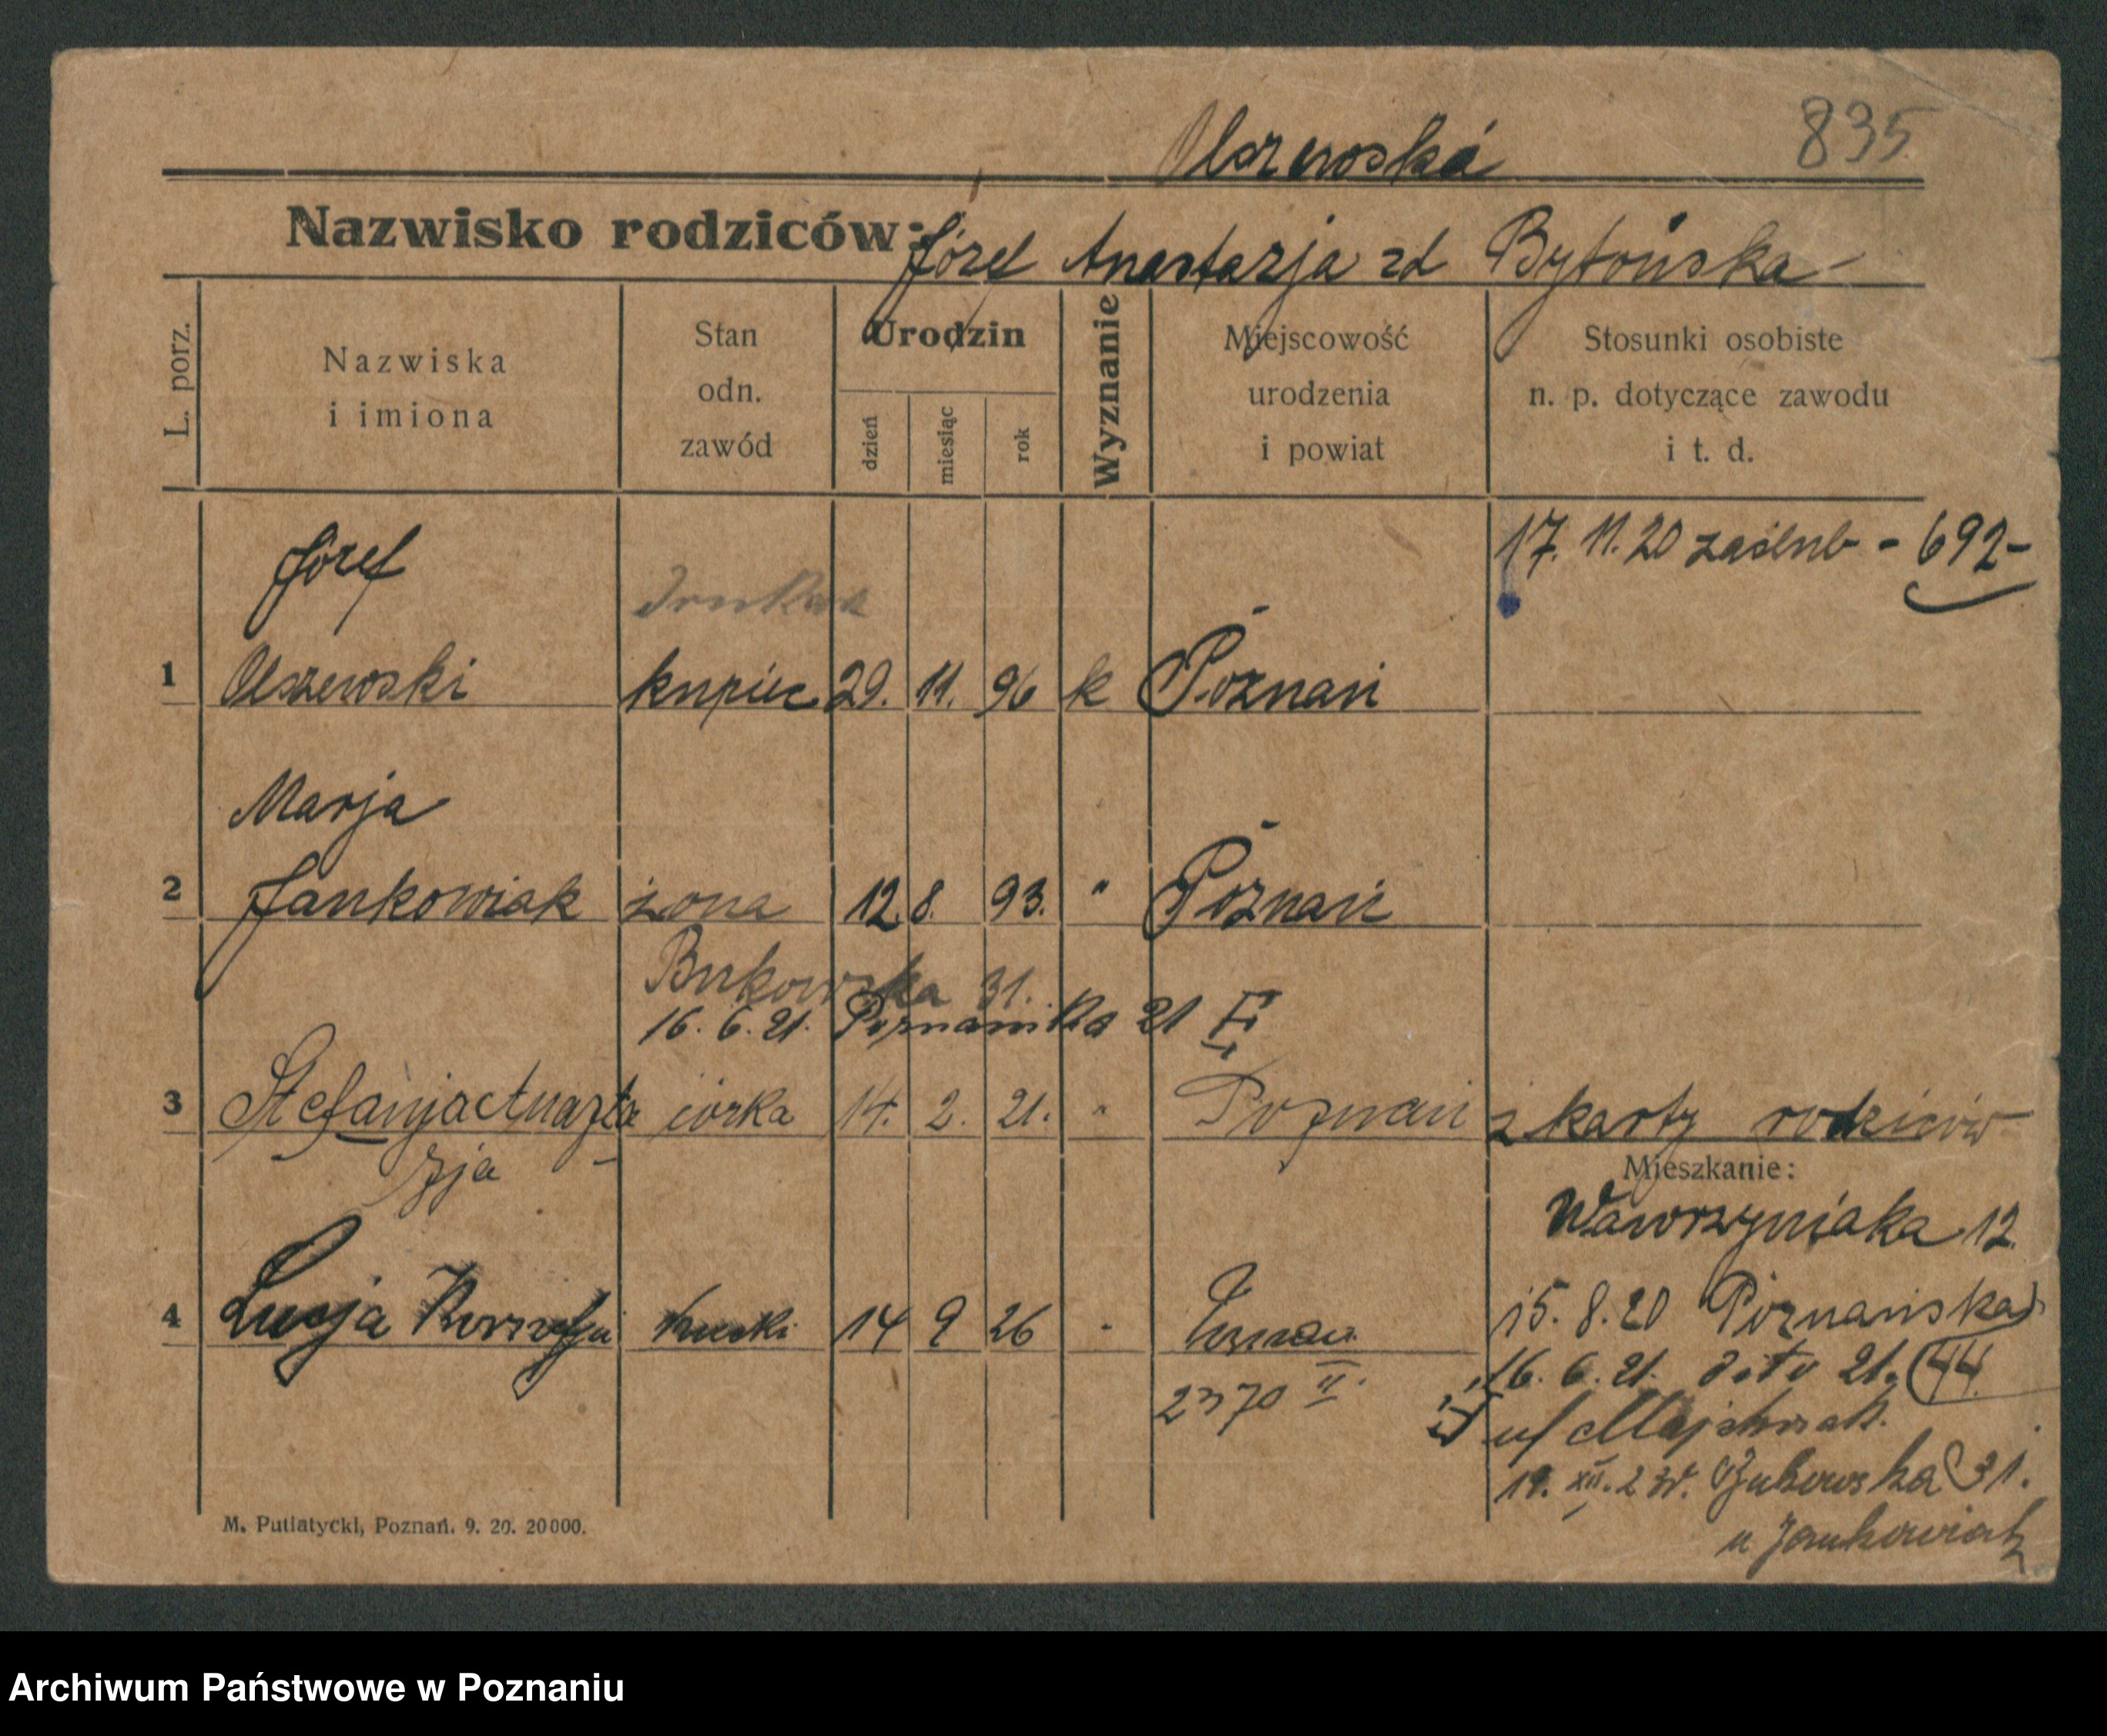 Olszewska
835
Nazwisko rodziców: Józef Anastazja zd Bytońska
L. porz.
Nazwiska
i imiona
Stan
odn.
zawód
Urodzin
dzień
miesiąc
rok
Wyznanie
Miejscowość
urodzenia
i powiat
Stosunki osobiste
n. p. dotyczące zawodu
i t. d.
17. 11. 20 zaślub - 692-
Józef
1 Olszewski kupiec 29. 11. 96 k Poznań
Marja
2 Jankowiak żona 12. 8. 93. " Poznań
Bukowska 31.
16. 6. 21. Poznańska 21
3 Stefanja Anasta córka 14. 2. 21. " Poznań z karty rodziców
zja
Mieszkanie:
Wawrzyniaka 12.
4 Lucja 14 9 26 " Poznań
15. 8. 20 Poznańska
2370 II.
16. 6. 21. dito 21. 44
u/ Majchrzak.
19. XII. Bukowska 31.
u Jankowiak
M. Putiatycki, Poznań. 9. 20. 20000.
Archiwum Państwowe w Poznaniu